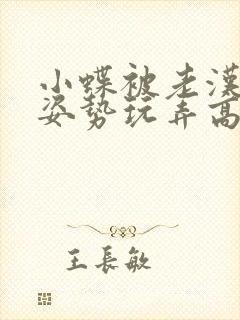 小蝶被老漢
姿势玩弄高
王長敏